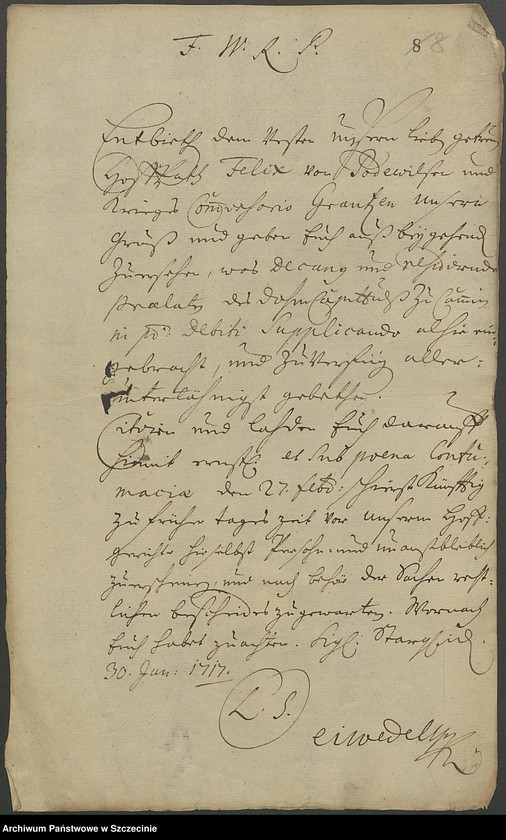 F. W. R. P.
8 8
Entbieth dem Vesten unsern lieben getreuen
Hoff Rath Felix von Podewilsen und
Kriegs Commissario Grantzen unsern
Gruß und geben Euch auß beygehend
Zuersehen, was Decanus und residirende
Praelaten des Dohm Capittulß zu Cammin
in p. Debiti Supplicando alhie ein-
gebracht, und zu Verfüg aller-
unterthänigst gebethen.
Citiren und lahden Euch darauff
hiemit ernstl. et sub poena Contu-
maciae den 27. Febr: schierst Künfftig
zu früher tages zeit vor unserm Hoff-
gerichte hieselbst Persohn- und unausbleiblich
zuerscheinen, und nach behör der Sachen recht-
lichen bescheides zugewarten. Wornach
Euch habet zu achten. Sigl. Stargard.
30. Jan: 1717.
L. S.
Archiwum Państwowe w Szczecinie